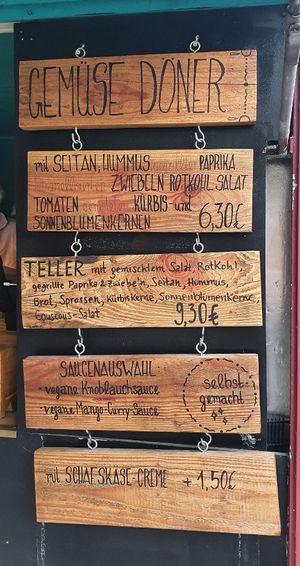 GEMÜSE DÖNER
mit SEITAN, HUMMUS PAPRIKA
ZWIEBELN ROTKOHL SALAT
TOMATEN KÜRBIS- und
SONNENBLUMENKERNEN 6,30€
TELLER mit gemischtem Salat, Rotkohl,
gegrillte Paprika & Zwiebeln, Seitan, Hummus,
Brot, Sprossen, Kürbiskerne, Sonnenblumenkerne,
Couscous-Salat 9,30€
SAUCENAUSWAHL:
- vegane Knoblauchsauce
- vegane Mango-Curry-Sauce
selbst
gemacht
mit SCHAFSKÄSE-CREME + 1,50€